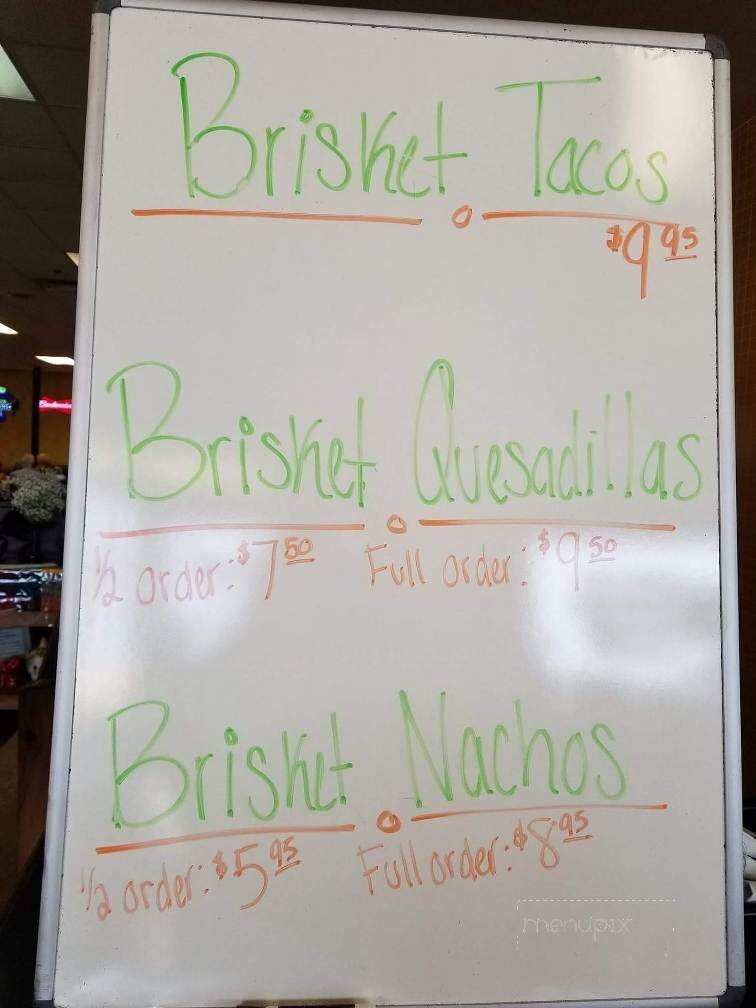 Brisket Tacos
$9.95
Brisket Quesadillas
1/2 order: $7.50 Full order: $9.50
Brisket Nachos
1/2 order: $5.95 Full order: $8.95
menupix